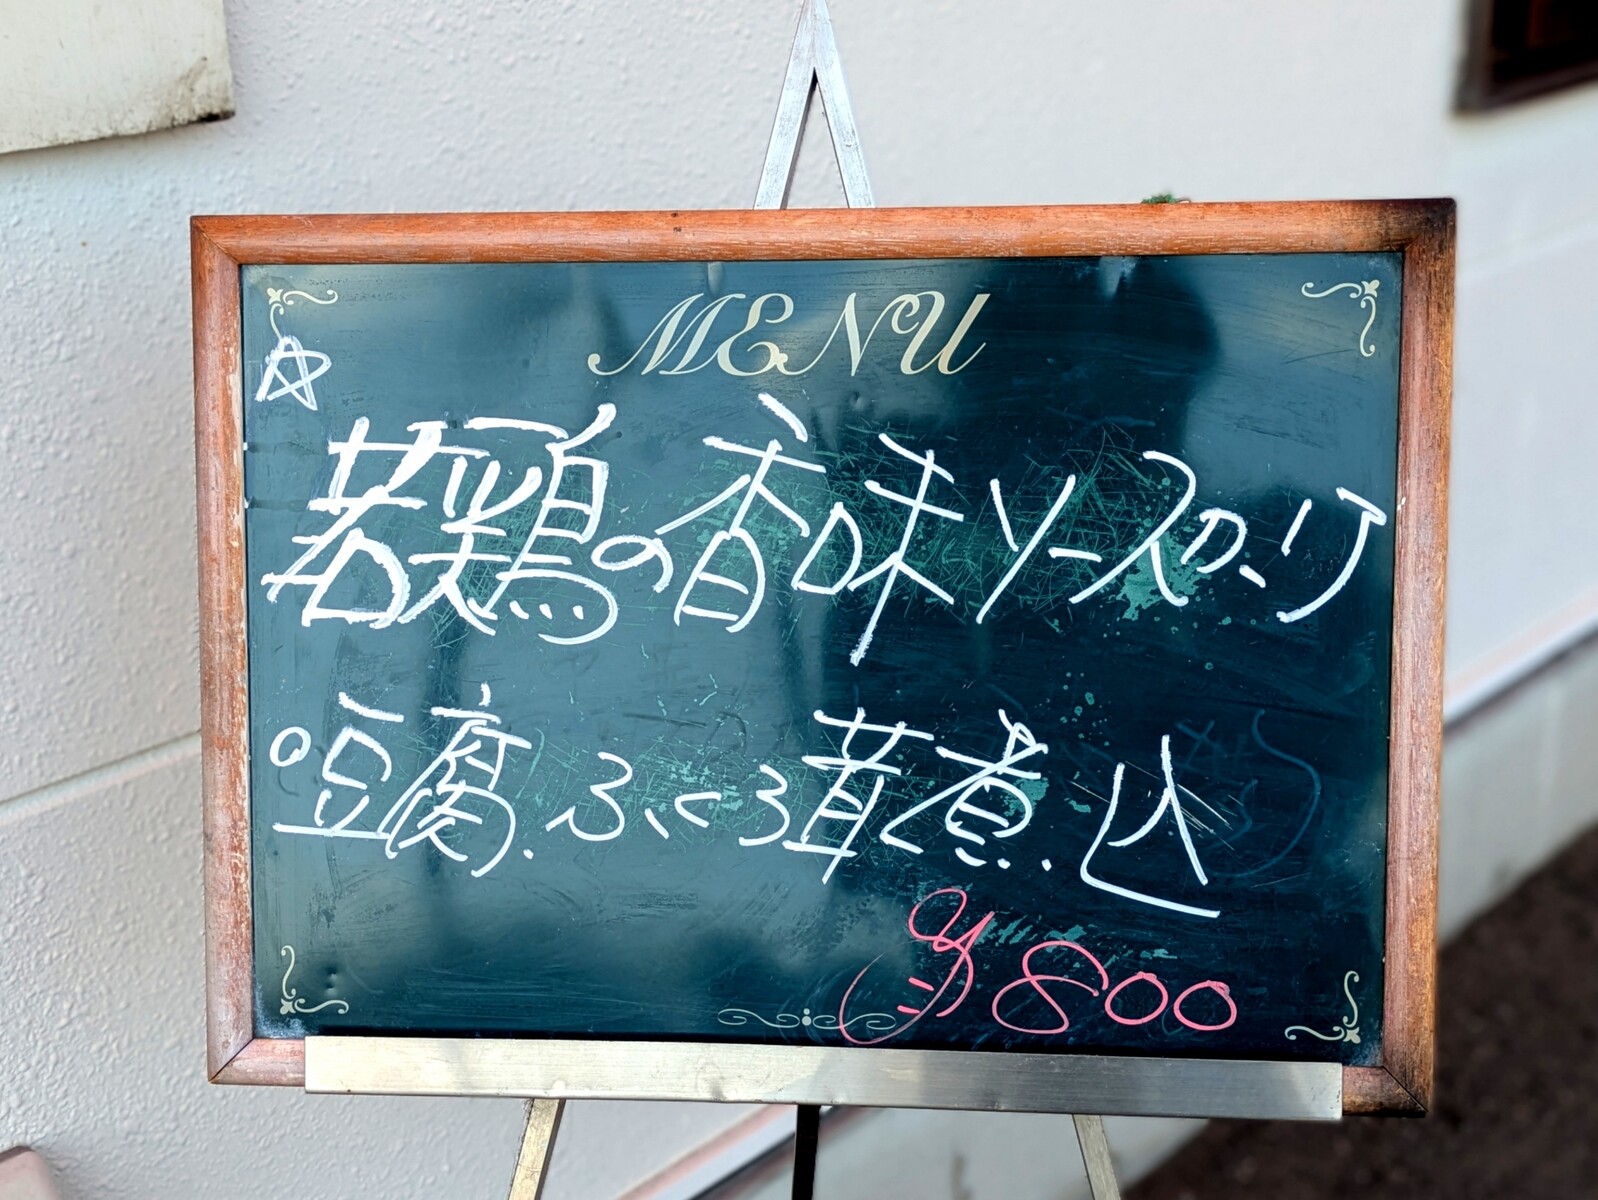 MENU
☆
若鶏の香味ソースかけ
○豆腐.ふくろ茸煮込
¥800